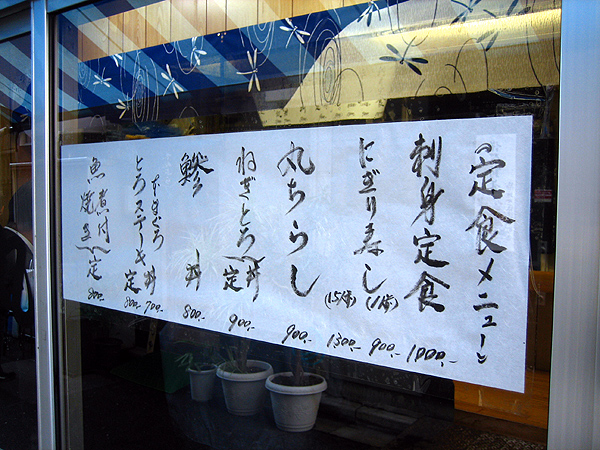 定食メニュー
刺身定食 1000,-
にぎり寿し(1人前) 900,-
(1.5人前) 1300,-
丸ちらし 900,-
ねぎとろ丼
定 900,-
鯵丼 800,-
丼 700,-
とろステーキ定 800,-
魚煮付
焼き定 800,-